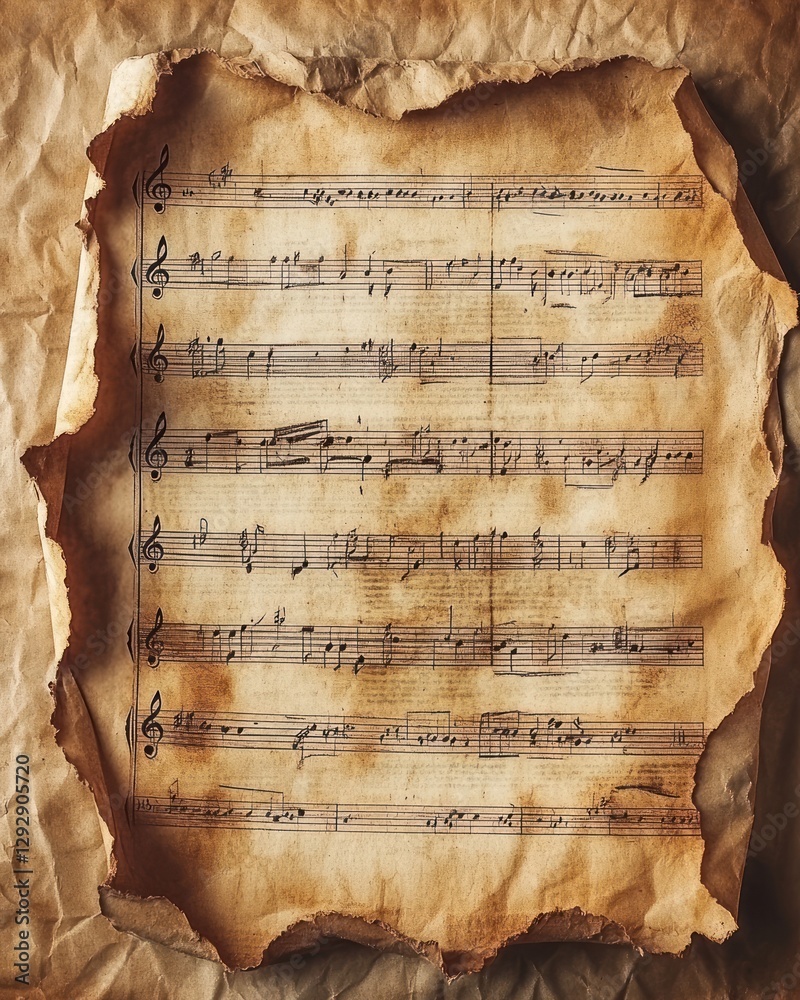 Adobe Stock | #1292905720